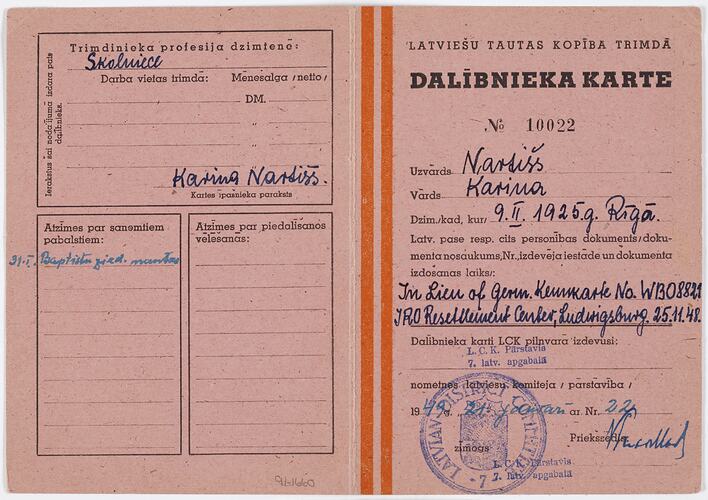 Trimdinieka profesija dzimtenē:
Skolniece
Darba vietas trimdā: Mēnešalga /netto/
DM.
"
"
"
Karina Nartišs.
Kartes īpašnieka paraksts
Ierakstus šai nodalījumā izdara pats
dalībnieks.
Atzīmes par saņemtiem
pabalstiem:
31.I. Baptistu mantas
Atzīmes par piedališanos
vēlēšanās:
94-1660
LATVIEŠU TAUTAS KOPĪBA TRIMDĀ
DALĪBNIEKA KARTE
№ 10022
Uzvārds Nartišs
Vārds Karina
Dzim./kad, kur/ 9.II. 1925.g. Rīgā.
Latv. pase resp. cits personības dokuments/doku-
menta nosaukums,Nr.,izdevēja iestāde un dokumenta
izdošanas laiks/:
In Lieu of Germ. Kennkarte No. WB08829
IRO Resettlement Center, Ludwigsburg. 25.11.48.
Dalībnieka karti LCK pilnvarā izdevusi:
L. C. K. Pārstāvis
7. latv. apgabalā
nometnes latviešu komiteja / pārstāvība /
1949.g. 21. janvārī ar Nr. 22
Priekšsēdis:
zīmogs
LATVIAN DISTRICT COMMITTEE
- 7 -
L. C. K. Pārstāvis
7. latv. apgabalā